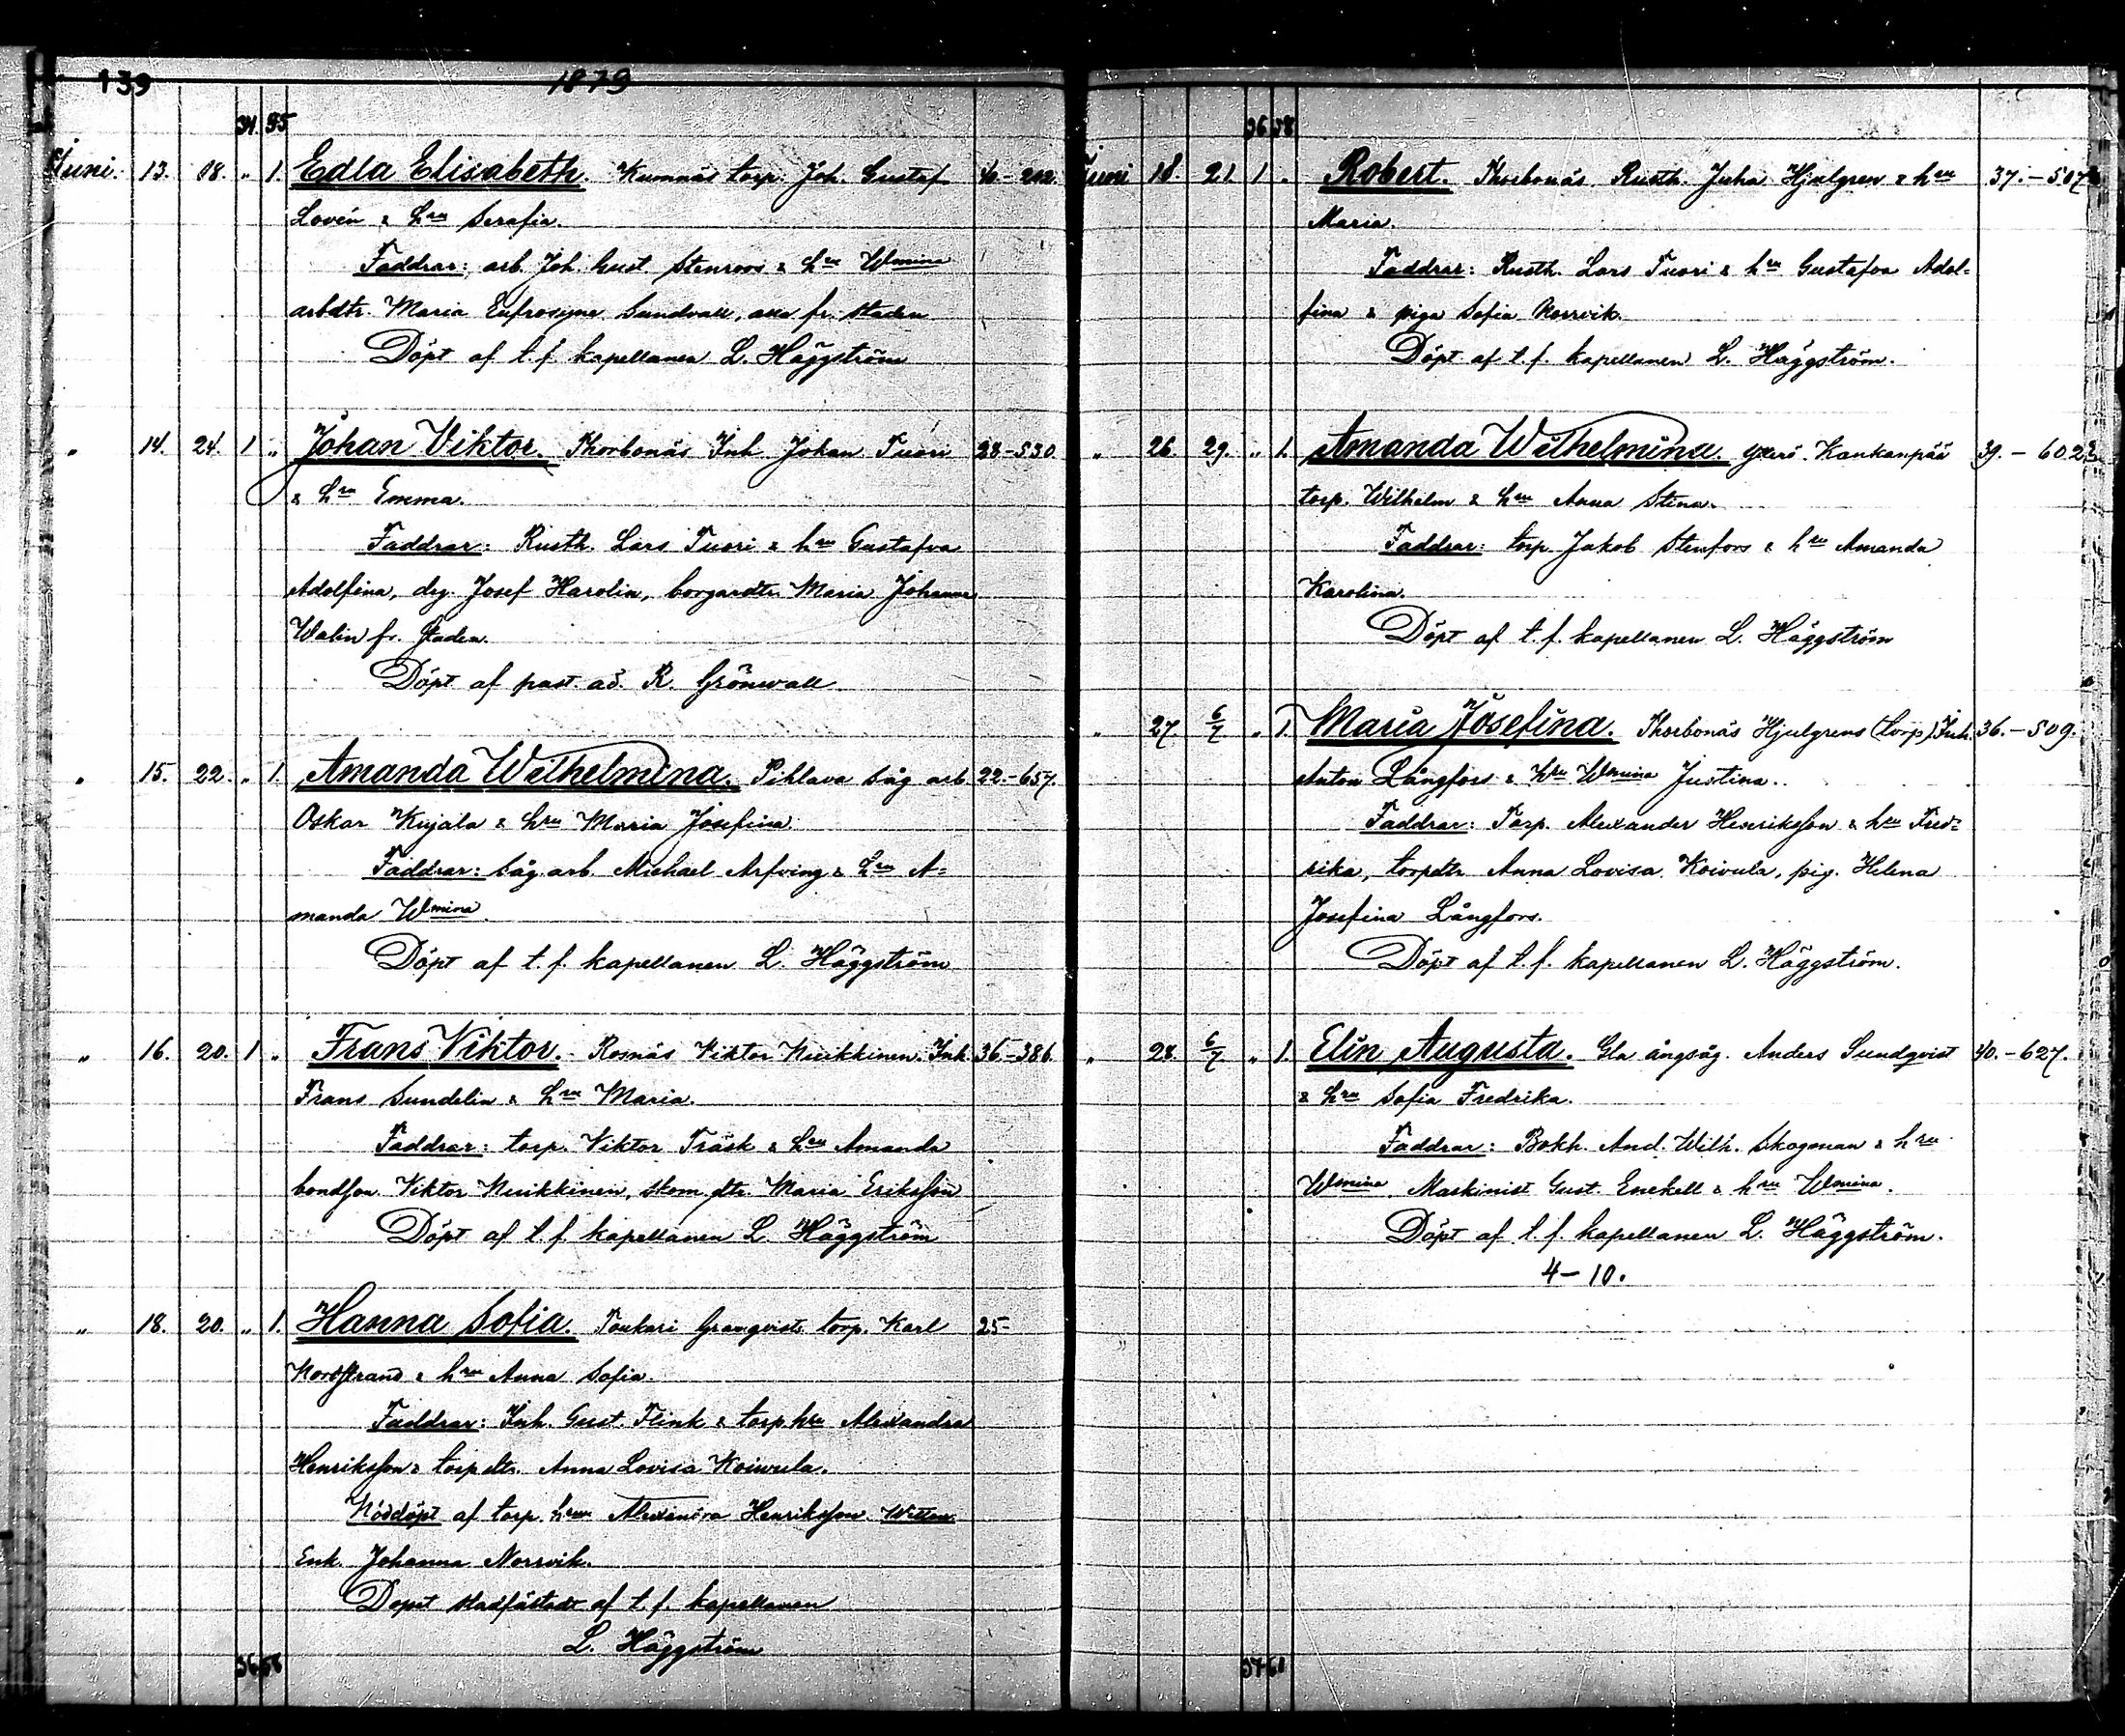 139 1879
34 55
Juni. 13. 18. " 1. Edla Elisabeth. Kumnäs torp. Joh. Gustaf 40-202.
Lovén & hru Serafia.
Faddrar: arb. Joh. Gust. Stenroos & hru Wmina
arbdtr. Maria Eufrosyne Sundvall, alla fr. staden
Döpt af t.f. kapellanen L. Häggström
" 14. 24. 1 " Johan Viktor. Thorbonäs Inh. Johan Tuori 28-530.
& hru Emma.
Faddrar: Rusth. Lars Tuori & hru Gustafva
Adolfina, drg. Josef Harolin, borgardtr. Maria Johanna
Walin fr. staden.
Döpt af past. ad. R. Grönwall
" 15. 22. " 1. Amanda Wilhelmina. Pihlava såg arb. 22-657.
Oskar Kujala & hru Maria Josefina.
Faddrar: Såg. arb. Michael Arfving & hru A=
manda Wmina.
Döpt af t.f. kapellanen L. Häggström
" 16. 20. 1 " Frans Viktor. Rosnäs Viktor Nuikkinen. Inh. 36-386.
Frans Sundelin & hru Maria.
Faddrar: torp. Viktor Träsk & hru Amanda
bondson Viktor Nuikkinen, skom. dtr. Maria Eriksson
Döpt af t.f. kapellanen L. Häggström
" 18. 20. " 1. Hanna Sofia. Toukari Granqvists torp. Karl 25-
Nordstrand & hru Anna Sofia.
Faddrar: Inh. Gust. Flink & torp.hru Alexandra
Henriksson & torp.dtr. Anna Lovisa Koivula.
Nöddöpt af torp. hrun Alexandra Henriksson. Vittne
Enk. Johanna Norrvik.
Dopet stadfästadt af t.f. kapellanen
L. Häggström
36 58
36 58
Juni 18. 21. 1 " Robert. Thorbonäs Rusth. Juha Hjulgren & hru 37.-507
Maria.
Faddrar: Rusth. Lars Tuori & hru Gustafva Adol=
fina & piga Sofia Norrvik.
Döpt af t.f. kapellanen L. Häggström.
" 26. 29. " 1. Amanda Wilhelmina. Yterö Kankanpää 39.-602
torp. Wilhelm & hru Anna Stina.
Faddrar: torp. Jakob Stenfors & hru Amanda
Karolina.
Döpt af t.f. kapellanen L. Häggström
" 27. 6/7 " 1. Maria Josefina. Thorbonäs Hjulgrens (torp) Inh. 36.-509.
Anton Långfors & hru Wmina Justina.
Faddrar: Torp. Alexander Henriksson & hru Fred=
rika, torpdtr. Anna Lovisa Koivula, pig. Helena
Josefina Långfors.
Döpt af t.f. kapellanen L. Häggström.
" 28. 6/7 " 1. Elin Augusta. Gla ångsåg. Anders Sundqvist 40.-627.
& hru Sofia Fredrika.
Faddrar: Bokh. And. Wilh. Skogman & hru
Wmina, Maskinist Gust. Enckell & hru Wmina.
Döpt af t.f. kapellanen L. Häggström.
4-10.
37 61